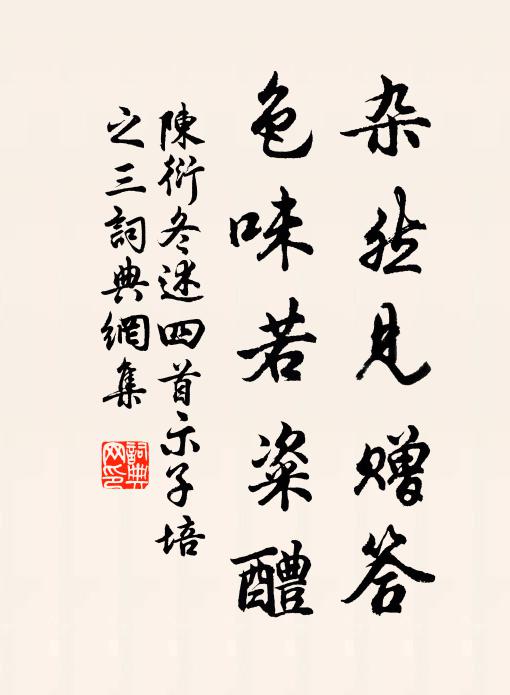 杂然见赠答
色味若粢醴
陳衍冬述四首示子培
之三詞典網集
詞典网印